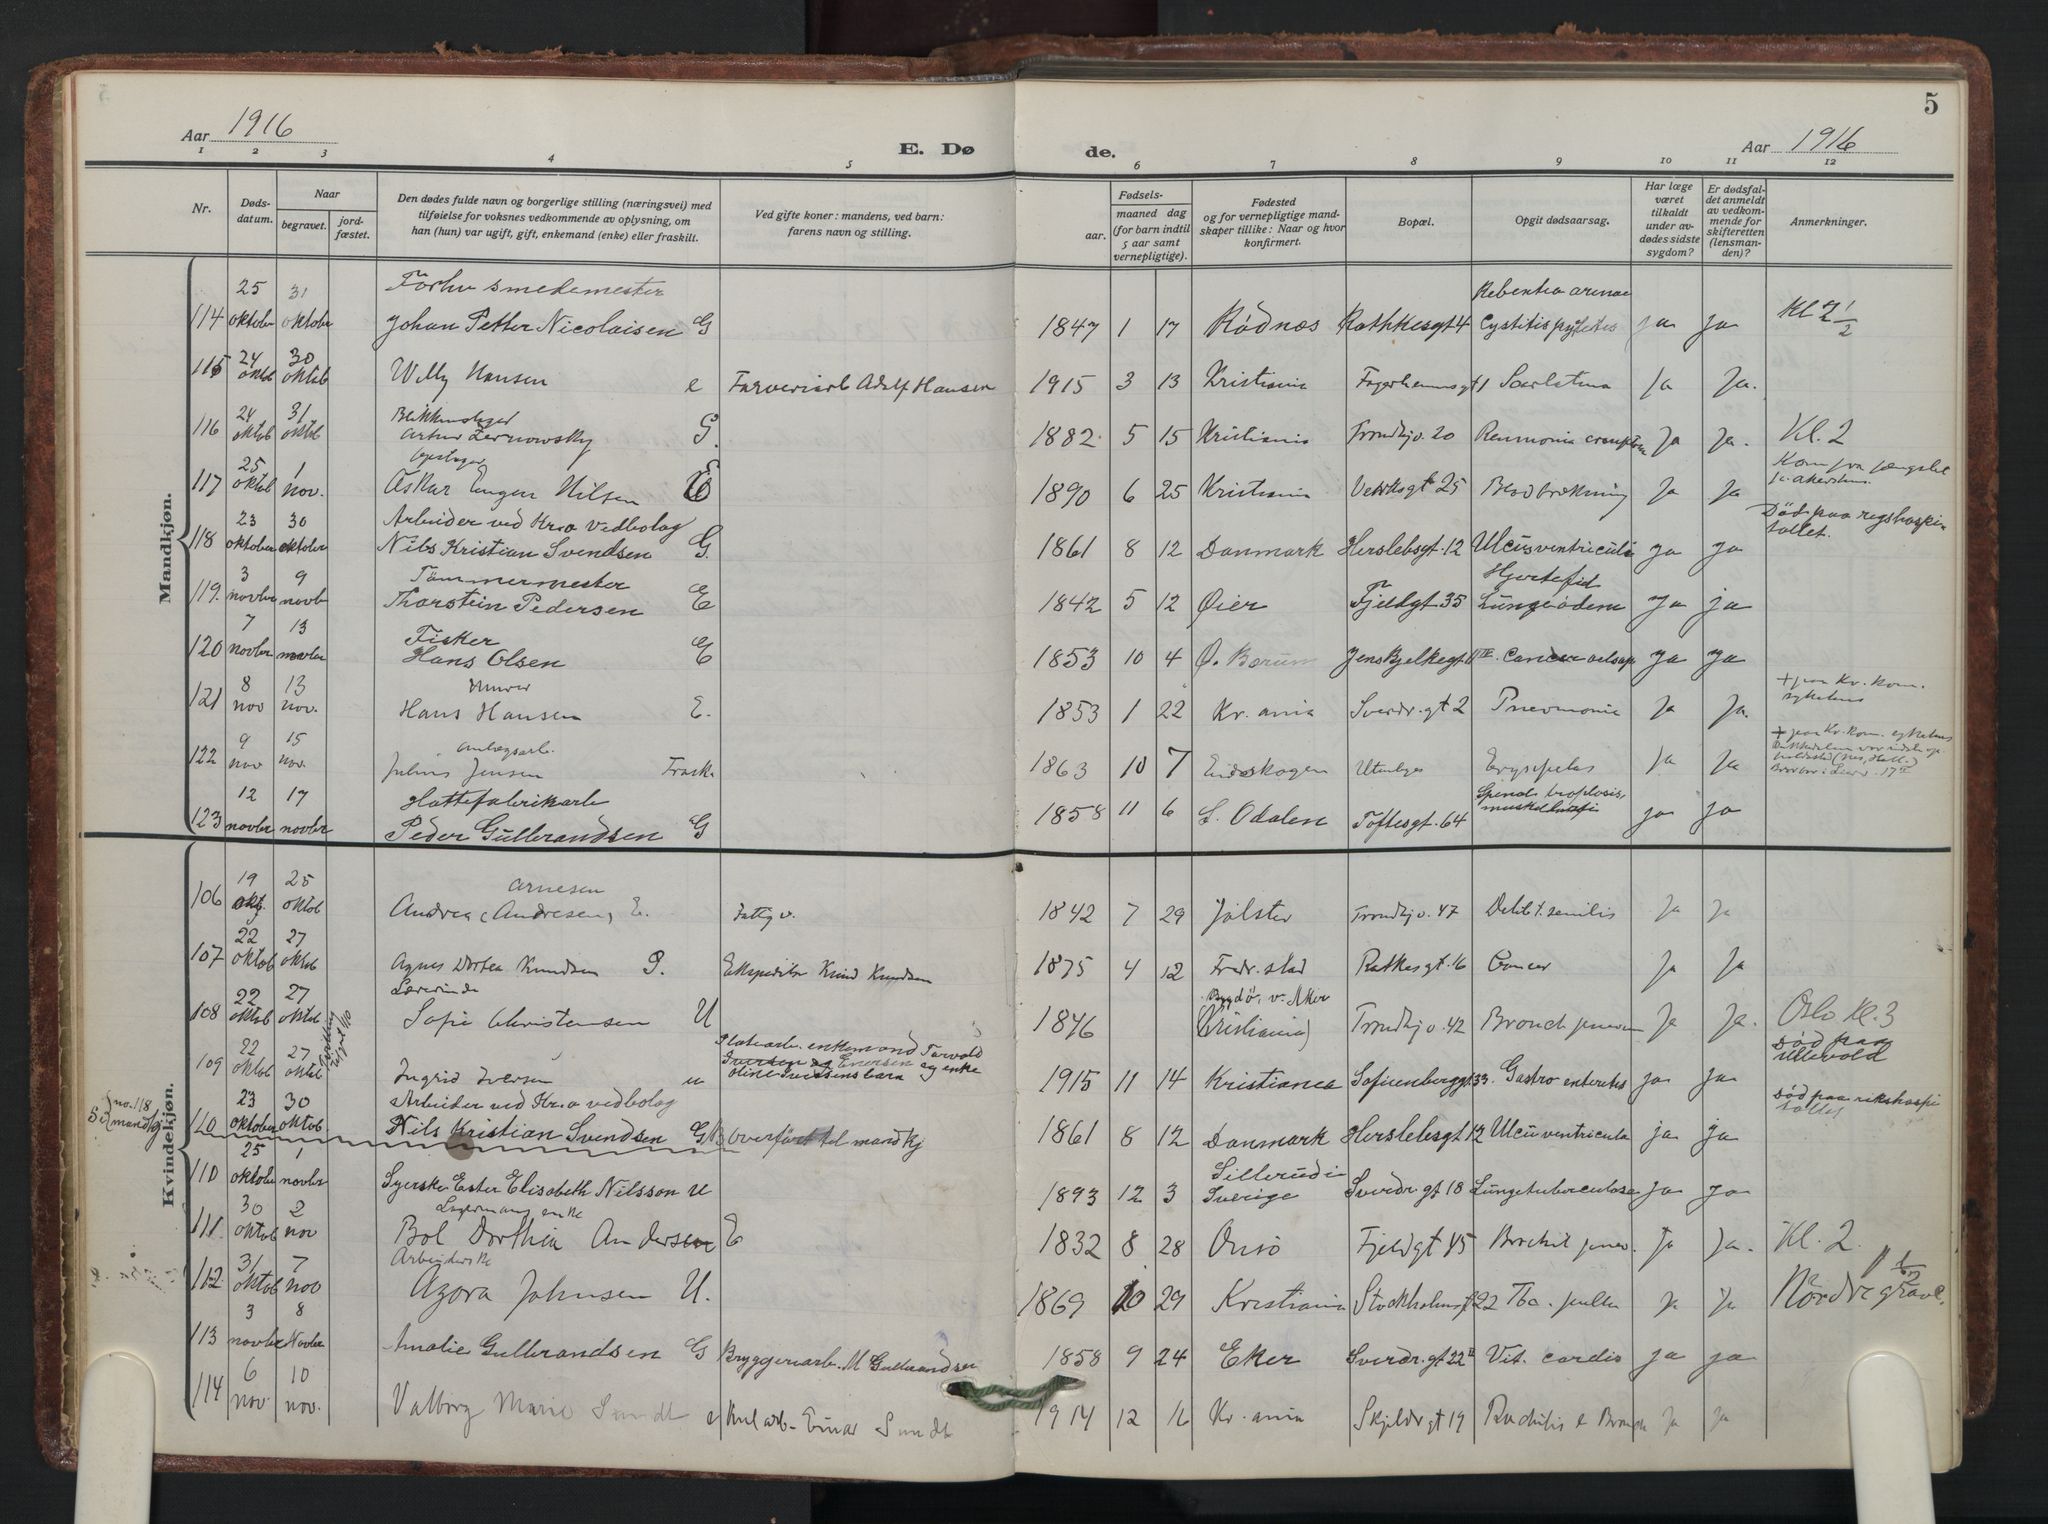 5
Aar 1916
E. Døde.
Aar 1916
1 2 3 4 5 6 7 8 9 10 11 12
Nr.
Døds-datum.
Naar
begravet.
jord-fæstet.
Den dødes fulde navn og borgerlige stilling (næringsvei) med
tilføielse for voksnes vedkommende av oplysning, om
han (hun) var ugift, gift, enkemand (enke) eller fraskilt.
Ved gifte koner: mandens, ved barn:
farens navn og stilling.
Fødsels-
aar.
maaned dag
(for barn indtil
5 aar samt
vernepligtige).
Fødested
og for vernepligtige mand-
skaper tillike: Naar og hvor
konfirmert.
Bopæl.
Opgit dødsaarsag.
Har læge
været
tilkaldt
under av-
dødes sidste
sygdom?
Er dødsfal-
det anmeldt
av vedkom-
mende for
skifteretten
(lensman-
den)?
Anmerkninger.
Mandkjøn.
25 31 Forhv smedemester
114 oktober oktober Johan Petter Nicolaisen G 1847 1 17 Rødnæs Rathkesgt 4 Cystitis ja ja Kl 2 1/2
24 30
115 oktob oktob Willy Hansen e Farveriarb Adolf Hansen 1915 3 13 Kristiania 1 Scarlatina Ja Ja.
24 31 Blikkenslager
116 oktob oktob Artur G. 1882 5 15 Kristiania Trondhj v. 20 Ja Ja. Kl. 2
25 1
117 oktob nov. Oskar Eugen Nilsen E 1890 6 25 Kristiania 25 Blodbrækning Ja Ja Kom fra fængslet
23 30 Arbeider ved Kr.a Vedbolag Død paa rigshospitallet.
118 oktober oktober Nils Kristian Svendsen G. 1861 8 12 Danmark Herslebsgt. 12 Ulcus ventriculi ja ja
3 9 Tømmermester Hjertefeil
119. novbr novbr Thorstein Pedersen E 1842 5 12 Øier Fjeldgt 35 Lungeødem Ja ja
7 13 Fisker
120 novber novber Hans Olsen E 1853 10 4 Ø. Bærum Jens Bjelkesgt 11 IV. Cancer ja ja
8 13 Murer + paa Kr. kom. sykehus
121 nov nov. Hans Hansen E. 1853 1 22 Kr. ania Sverdr. gt 2 Pnevmonia Ja Ja.
9 15 anlægsarb. + paa Kr. kom. sykehus
122 nov nov. Julius Jensen Frask. 1863 10 7 Eidskogen Utenbys Erysipelas Ja Ja
12 17 Hattefabrikarb
123 novber novber Peder Gulbrandsen G 1858 11 6 S. Odalen Toftesgt. 64 ja Ja
Kvindekjøn.
19 25 Arnesen
106 okt. oktob Andrea (Andresen) E. Fattig v. 1842 7 29 Jølster Trondhj v. 47 Debil t. senilis Ja Ja
22 27
107 oktob oktob Agnes Dortea Knudsen G. Ekspeditør Knud Knudsen 1875 4 12 Fredr. stad Ratkesgt. 16 Cancer Ja Ja
22 27 Lærerinde Bygdø, v. Aker
108 oktob oktob Sofie Christensen U 1846 (Kristiania) Trondhj v. 42 Bronch pnevm Ja Ja. Oslo Kl. 3
22 27 enkemand Torvald Død paa
109 oktob oktob Ingrid Iversen u Iversen og enke 1915 11 14 Kristiania Sofienberggt 33. Gastro enterites ja Ja Ullevold
23 30 Arbeider ved Kr.a vedbolag Død paa rikshospitallet
Se no. 118 mandkj
110 oktober oktob. Nils Kristian Svendsen G Overført til mandkj 1861 8 12 Danmark Herslebsgt 12 Ulcus ventricula ja ja
25 1
110 oktober novber Syerske Ester Elisabeth Nilsson U 1893 12 3 Sillerud i Sverige Sverdr. gt 18 Lungetuberculose ja ja
30 2 enke
111. oktob nov Bol Dorthea Andersen E 1832 8 28 Onsø Fjeldgt 45 pnev. Ja Ja. Kl. 2.
31 7 Arbeiderske
112 oktob nov Agora Johnsen U. 1869 10 29 Kristiania Stockholmsgt 22 Tbc. pulm Ja Ja Nordre gravl.
3 8
113 novber Novber Amalie Gulbrandsen G Bryggeriarb. M Gulbrandsen 1858 9 24 Eker Sverdr. gt 22 II Vit. cordis ja ja
6 10
114 nov. nov. Valborg Marie Sundt e Kularb. Einar Sundt 1914 12 16 Kr. ania Skjeldr gt 19 Rachitis Ja Ja